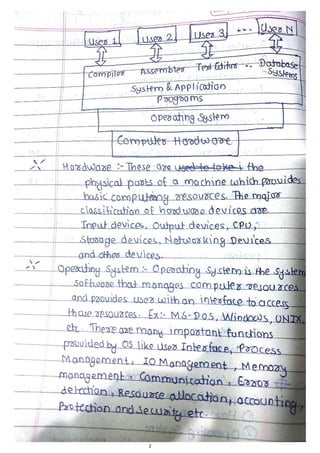 User 1 User 2 User 3 ... User N
Compiler Assembler Text Editor .. Database Systems
System & Application
Programs
Operating System
Computer Hardware
Hardware :- These are used to take i the
physical parts of a machine which provides
basic computing resources. The major
classification of hardware devices are
Input devices, Output devices, CPU,
Storage devices, Networking Devices
and other devices.
Operating System :- Operating System is the System
software that manages computer resources
and provides user with an interface to access
those resources. Ex:- MS-DOS, Windows, UNIX,
etc. There are many important functions
provided by OS like User Interface, Process
Management, IO Management, Memory
management, Communication, Error
detection, Resource allocation, accounting,
Protection and Security etc.
2